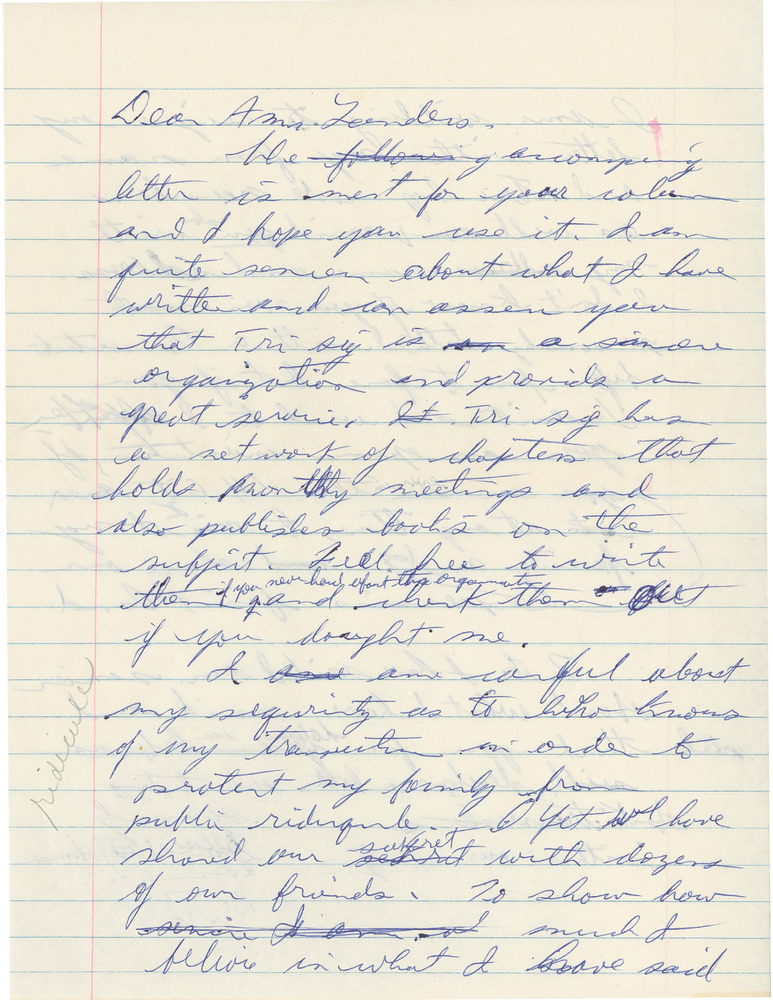 Dear Ann Landers,
The following accompying
letter is ment for your colum
and I hope you use it. I am
quite serien about what I have
written and can assen you
that Tri sig is an a sincere
organization and provids a
great service. It Tri sig has
a network of chapters that
holds monthly meetings and
also publishes books on the
subject. Feel free to write
if you never heard of this organization
them and check them out
if you dought me.
I am carful about
my sequrity as to who knows
of my transvestism in order to
protect my family from
public ridicquele. Yet we have
secret
shared our with dozens
of our friends. To show how
much I
belive in what I have said
ridicule